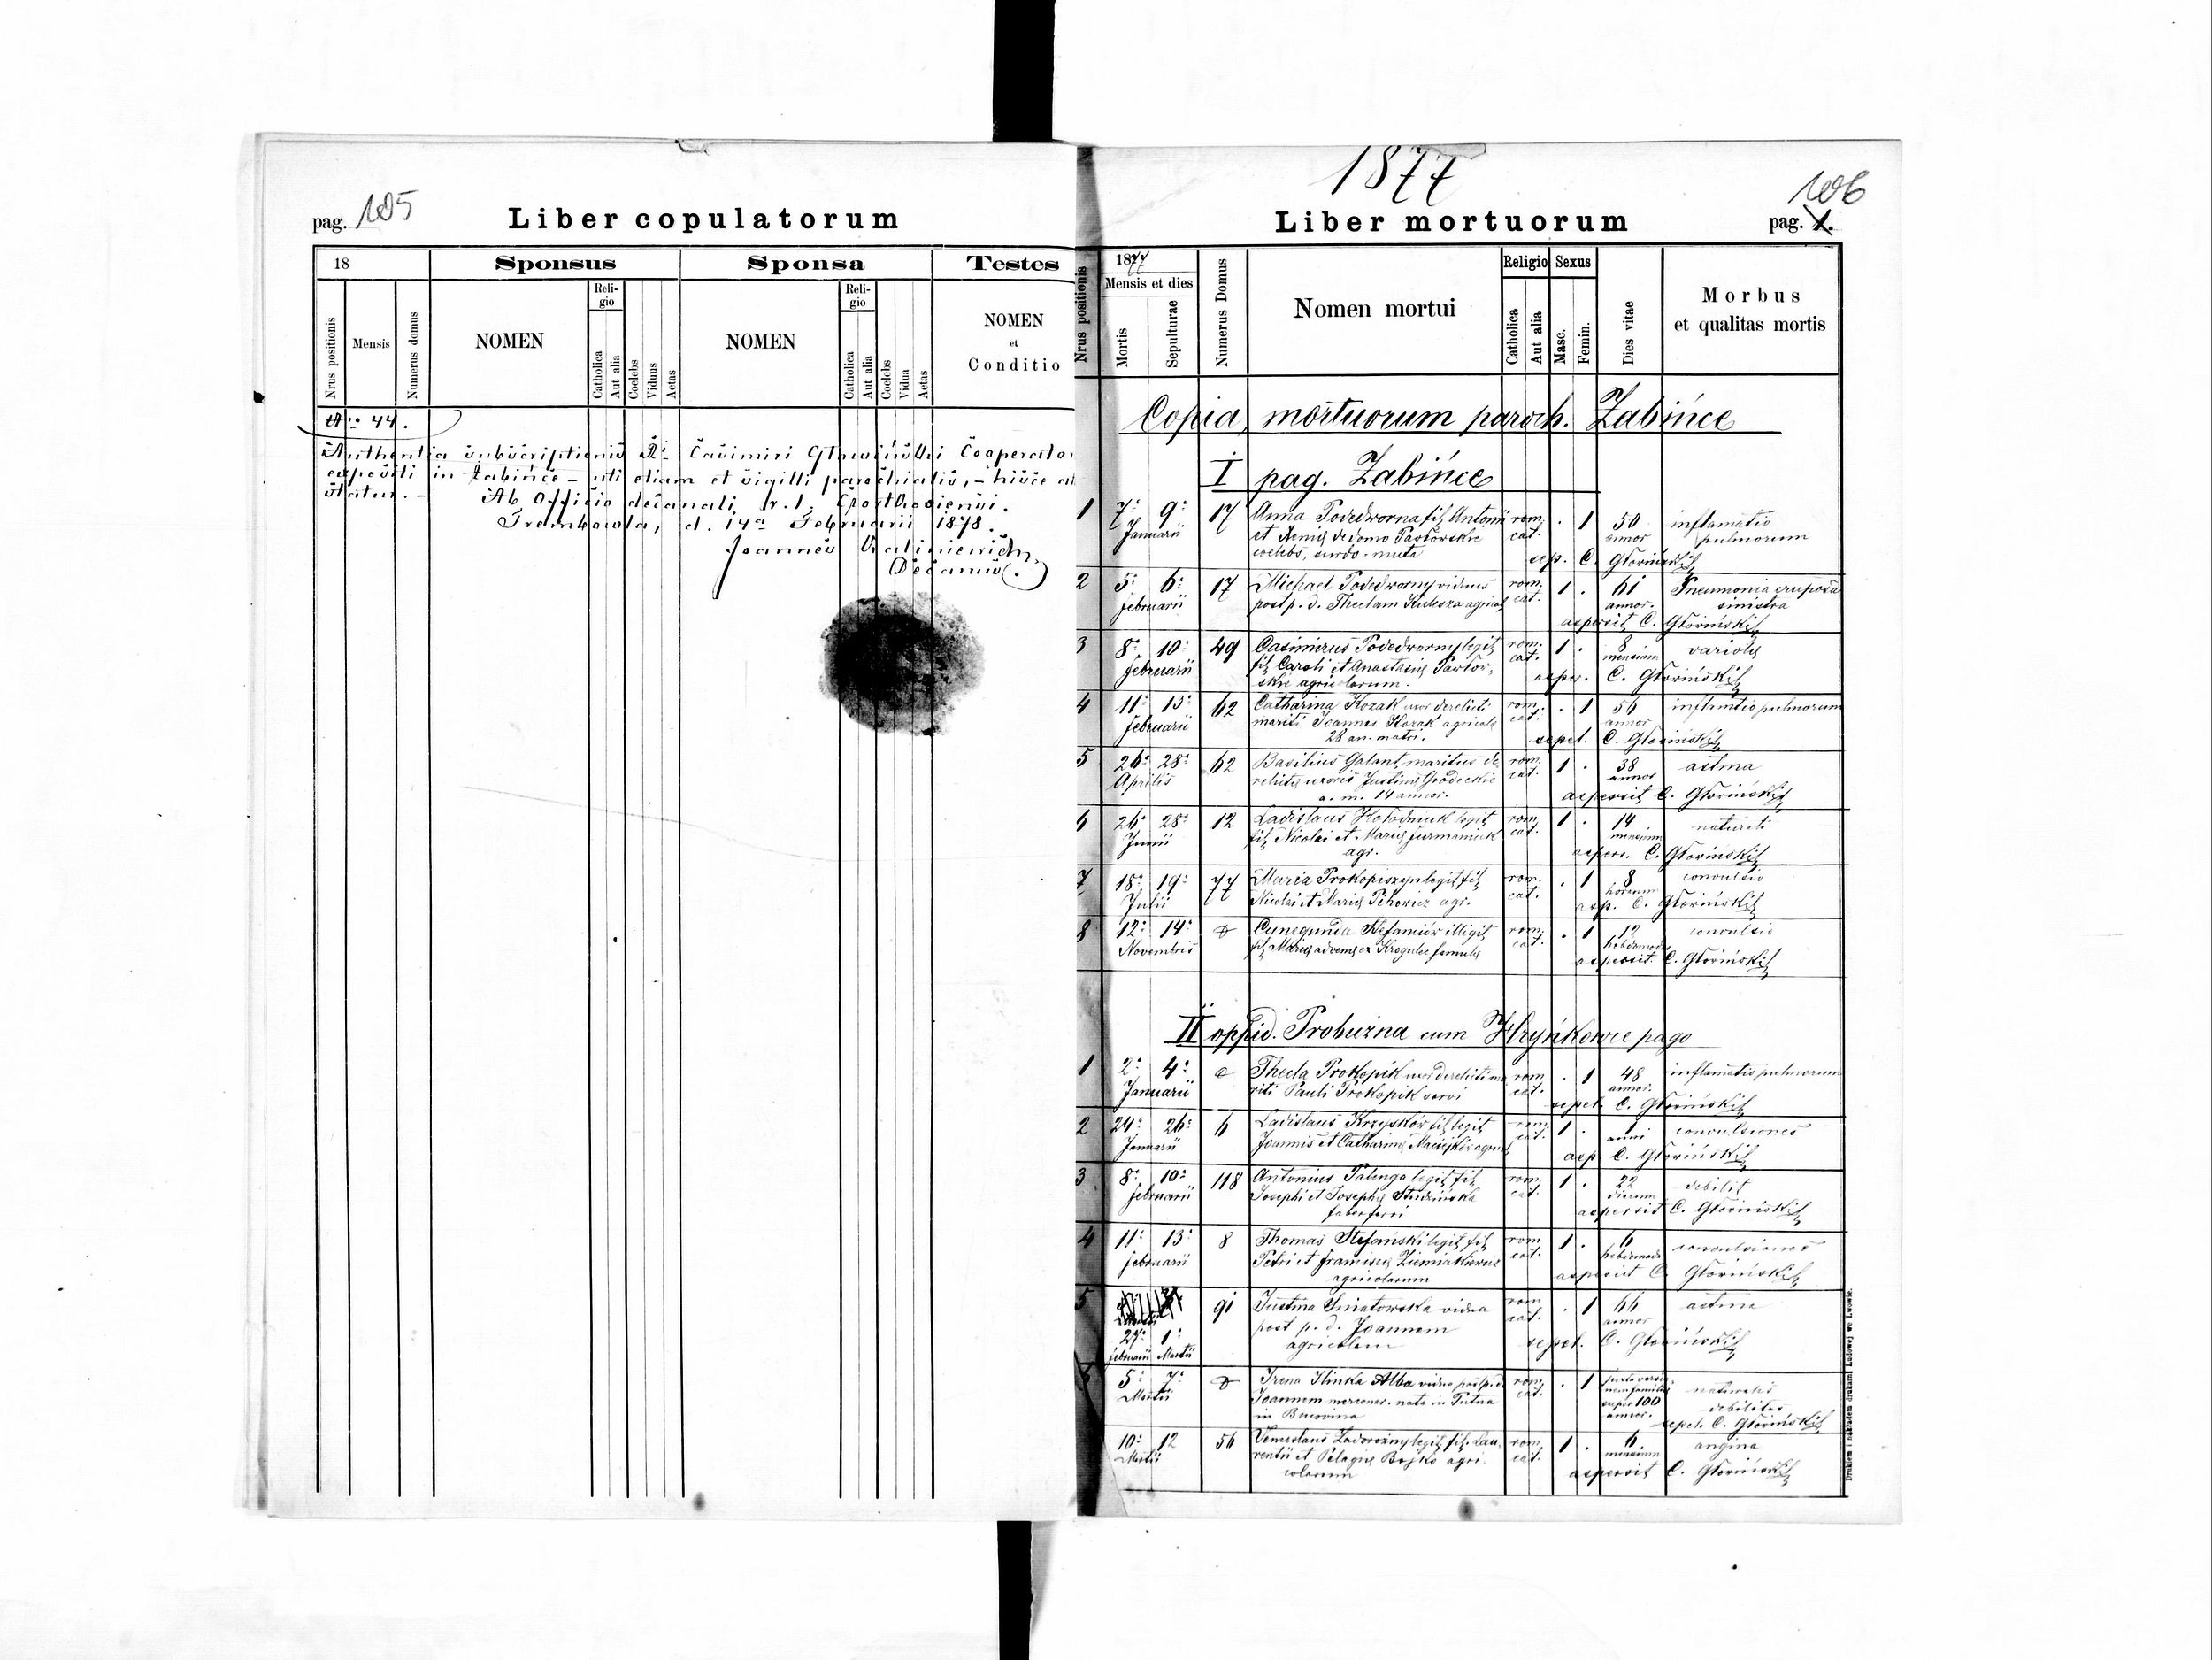 pag. 105
Liber copulatorum
18
Sponsus
Sponsa
Testes
Nrus positionis
Mensis
Numerus domus
NOMEN
Reli-
gio
Catholica
Aut alia
Coelebs
Viduus
Aetas
NOMEN
Reli-
gio
Catholica
Aut alia
Coelebs
Vidua
Aetas
NOMEN
et
Conditio
Nro 44.
Authentia subscriptionis Casimiri Głowiński Cooperator
expositi in Żabińce – uti etiam et sigilli parochialis, – hisce
Ab Officio decanali r. l. Czortkoviensi.
Trembowla, d. 14a Februarii 1878.
Joannes
Decanus.
1877
106
Liber mortuorum
pag. 1.
Nrus positionis
1877
Mensis et dies
Mortis
Sepulturae
Numerus Domus
Nomen mortui
Religio
Catholica
Aut alia
Sexus
Masc.
Femin.
Dies vitae
Morbus
et qualitas mortis
Copia mortuorum paroch. Żabińce
I pag. Żabińce
1 7a 9a 17 Anna Podedworna fil. Antonii rom. . 1 50 inflamatio
Januarii et de domo cat. annor pulmorum
coelebs, surdo-muta sep. C. Głowiński
2 5a 6a 17 Michael Podedworny viduus rom. 1 . 61 Pneumonia cruposa
februarii post p. d. Theclam Kulesza cat. annor. sinistra
aspersit C. Głowiński
3 8a 10a 49 Casimirus Podedworny legit. rom. 1 . 8 variolis
februarii fil. Caroli et Anastasiae cat. mensium
agricolarum. asper. C. Głowiński
4 11a 13a 62 Catharina Kozak uxor derelicti rom. . 1 56 inflmtio pulmorum
februarii mariti Joannis Kozak agricolae cat. annor
28 an. matri. sepel. C. Głowiński
5 26a 28a 62 Basilius Galant maritus de- rom. 1 . 38 astma
Aprilis relictae uxoris Justinae Grodeckie cat. annor
a. m. 14 annor. aspersit C. Głowiński
6 26a 28a 12 Ladislaus Hołodniuk legit. rom. 1 . 14
Junii fil. Nicolai et Mariae Furmaniuk cat. mensium
agr. aspers. C. Głowiński
7 18a 19a 77 Maria Prokopiszyn legit. fil. rom. . 1 8 convulsio
Julii Nicolai et Mariae agr. cat. horarum
asp. C. Głowiński
8 12a 14a Cunegunda illegit. rom. . 1 12 convulsio
Novembris fil. Mariae advenae ex famulae cat. hebdomad.
aspersit C. Głowiński
II oppid. Probużna cum Hryńkowce pago
1 2a 4a Thecla Prokopik uxor derelicti ma rom. . 1 48 inflamatio pulmorum
Januarii riti Pauli Prokopik servi cat. annor.
sepel. C. Głowiński
2 24a 26a 6 Ladislaus Krzyśków fil. legit. rom. 1 . convulsiones
Januarii Joannis et Catharinae cat. anni
asp. C. Głowiński
3 8a 10a 118 Antonius Palunga legit. fil. rom. 1 . 22 debilit
februarii Josephi et Josephae Studzińska cat. dierum
fabri ferri aspersit C. Głowiński
4 11a 13a 8 Thomas Stefański legit. fil. rom. 1 . 6 convulsiones
februarii Petri et Franciscae cat. hebdomad.
agricolarum aspersit C. Głowiński
5 91 Justina Śniatowska vidua rom. . 1 66 astma
27a 1a post p. d. Joannem cat. annor
februarii Martii agricolam sepel. C. Głowiński
6 5a 7a Irena Ilinka Alba vidua post p. d. rom. . 1 juxta versio- naturalis
Martii Joannem mercenar. nata in Putna cat. nem familiae debilitas
in Bucovina super 100 annor. sepel. C. Głowiński
10a 12 56 legit. fil. Lau- rom. 1 . 6 angina
Martii rentii et Pelagiae Bojko agri- cat. mensium
colarum aspersit C. Głowiński
Drukiem i nakładem drukarni Ludowej we Lwowie.